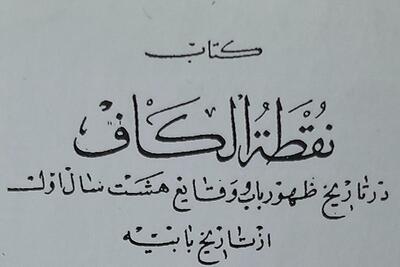 كتاب
نُقطةُ الكاف
در تاریخ ظهور باب و وقایع هشت سال اول
از تاریخ بابیه